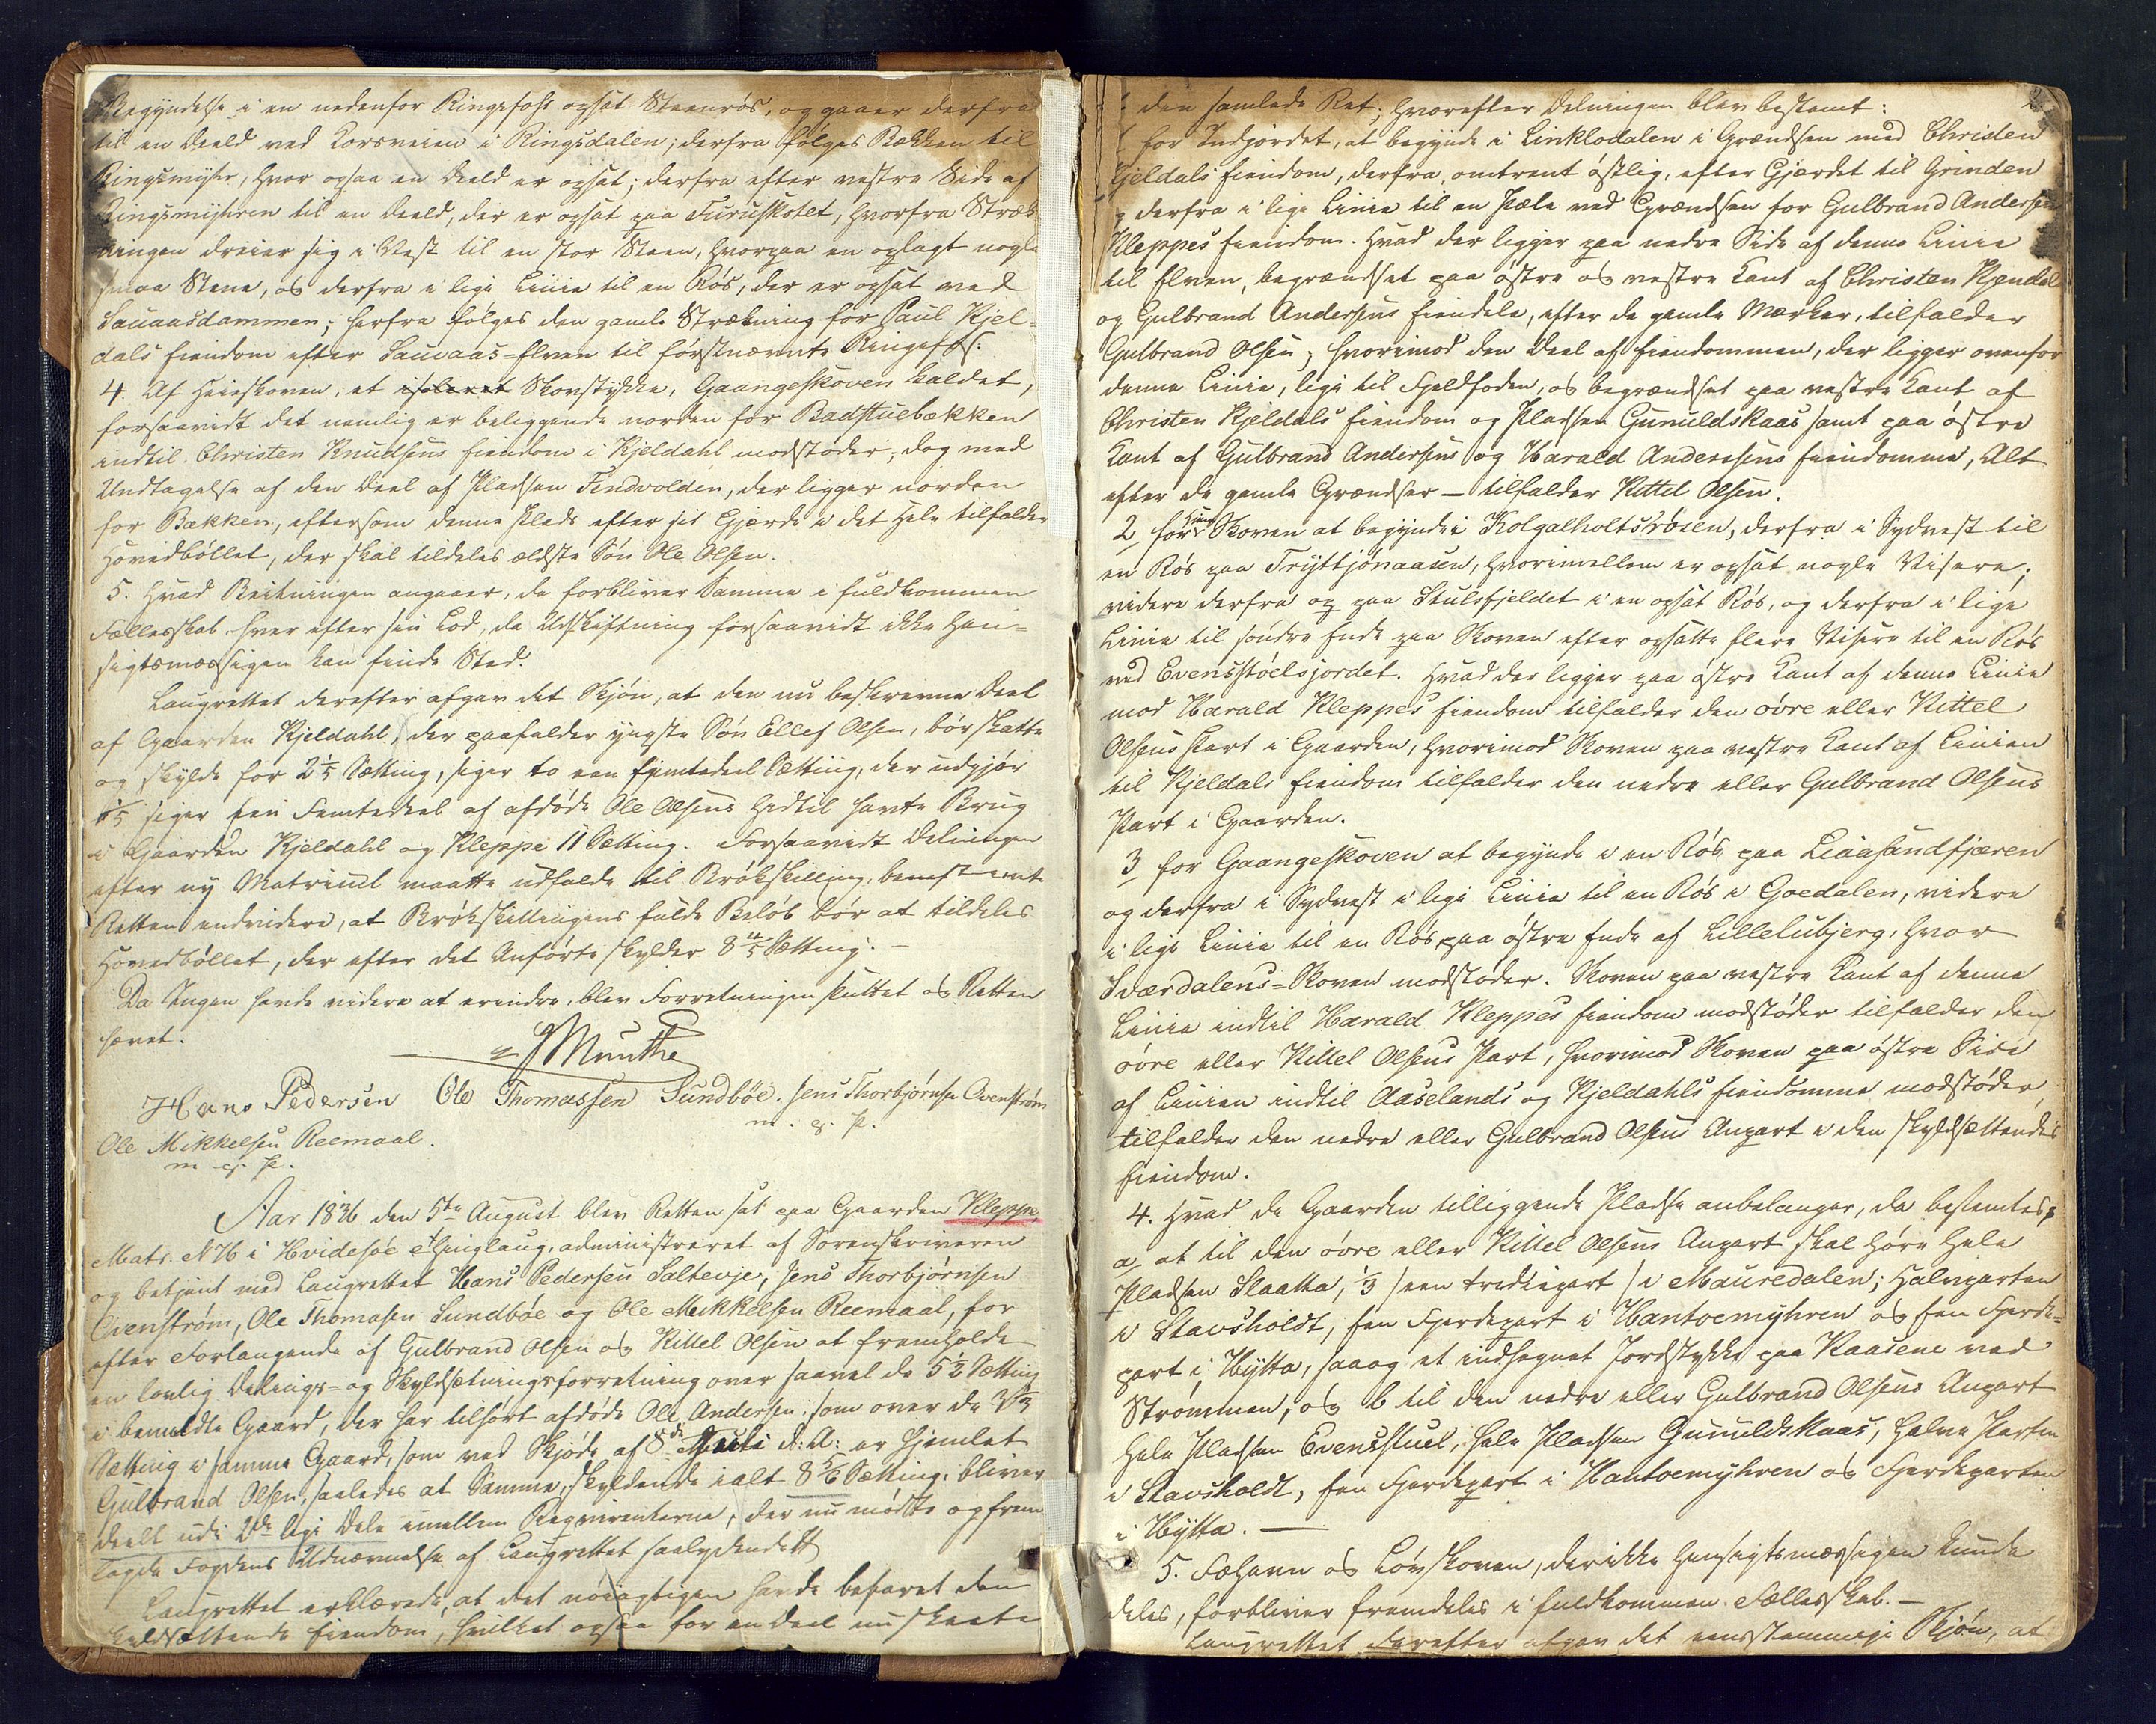 Begyndelse i en nedenfor Ringsfoss opsat Steenrös, og gaaer derfra
til en Deeld ved Korsveien i Ringsdalen; derfra fölges Bækken til
Ringsmyhr, hvor ogsaa en Deeld er opsat; derfra efter vestre Side af
Ringsmyhren til en Deeld, der er opsat paa Furuskotet, hvorfra Stræk-
ningen dreier sig i Vest til en stor Steen, hvorpaa en oplagt nogle
smaa Stene, og derfra i lige Linie til en Rös, der er opsat ved
Sauaasdammen; herfra fölges den gamle Strækning for Paul Kjel-
dals Eiendom efter Sauaas-Elven til förstnævnte Ringsfos.
4. Af Heieskoven, et isoleret Skovstykke, Gaangeskoven kaldet,
forsaavidt det nemlig er beliggende norden for Badstuebækken
indtil Christen Knudsens Eiendom i Kjeldahl modstöder, dog med
Undtagelse af den Deel af Pladsen Tindvolden, der ligger norden
for Bækken, eftersom denne Plads efter sit Gjærde i det Hele tilfalder
Hovedböllet, der skal tildeles ældste Sön Ole Olsen.
5. Hvad Beitningen angaaer, da forbliver Samme i fuldkommen
Fællesskab, hver efter sin Lod, da Udskiftning forsaavidt ikke hen-
sigtsmæssigen kan finde Sted.
Laugrettet derefter afgav det Skjön, at den nu beskrevne Deel
af Gaarden Kjeldahl, der paafalder yngste Sön Ellef Olsen, bör skatte
og skylde for 2 1/5 Sætting, siger to een femtedeel Sætting, der udgjör
1/5 siger een Femtedeel af afdöde Ole Olsens hidtil havte Brug
i Gaarden Kjeldahl og Kleppe 11 Sætting. Forsaavidt Delningen
efter ny Matricul maatte udfalde til Brökskilling, bemærkede
Retten endvidere, at Brökskillingens fulde Belöb bör at tildeles
Hovedböllet, der efter det Anförte skylder 8 4/5 Sætting. –
Da Ingen havde videre at erindre, blev Forretningen sluttet og Retten
hævet.
Munthe
Hans Pedersen Ole Thomassen Sundböe. Jens Thorbjörnsen Qvenström
m. f. P.
Ole Mikkelsen Reemaal.
m. f. P.
Aar 1836 den 5te August blev Retten sat paa Gaarden Kleppe
Matr. N 76 i Hvidesøe Thinglaug, administreret af Sorenskriveren
og betjent med Laugrettet Hans Pedersen Saltevje, Jens Thorbjörnsen
Qvenström, Ole Thomasen Sundböe og Ole Mekkelsen Reemaal, for
efter Forlangende af Gulbrand Olsen og Kittel Olsen at fremholde
en lovlig Delings- og Skyldsætningsforretning over saavel de 5 1/2 Sætting
i bemeldte Gaard, der har tilhört afdöde Ole Andersen, som over de 3 1/3
Sætting i samme Gaard, som ved Skjöde af 8de Juli d: A: er hjemlet
Gulbrand Olsen, saaledes at Samme, skyldende ialt 8 5/6 Sætting, bliver
deelt udi 2de lige Dele imellem Reqvirenterne, der nu mödte og frem-
lagde Fogdens Udnævnelse af Laugrettet saalydende
Laugrettet erklærede, at det nöiagtigen havde befaret den
skyldsættende Eiendom, hvilket ogsaa for en Deel nu skeete
den samlede Ret; hvorefter Delningen blev bestemt:
for Indjordet, at begynde i Linklodalen i Grændsen med Christen
Kjeldals Eiendom, derfra omtrent östlig, efter Gjærdet til Grinden
og derfra i lige Linie til en Pæle ved Grændsen for Gulbrand Andersen
Kleppes Eiendom. Hvad der ligger paa nedre Side af denne Linie
til Elven, begrændset paa östre og vestre Kant af Christen Kjendals
og Gulbrand Andersens Eiendele, efter de gamle Mærker, tilfalder
Gulbrand Olsen; hvorimod den Deel af Eiendommen, der ligger ovenfor
denne Linie, lige til Fjeldfoden, og begrændset paa vestre Kant af
Christen Kjeldals Eiendom og Pladsen Gunuldskaas samt paa östre
Kant af Gulbrand Andersens og Harald Anderssens Eiendomme, Alt
efter de gamle Grændser – tilfalder Kittel Olsen.
2 for Skoven at begynde i Kolgalholtströsen, derfra i Sydvest til
en Rös paa Tryttjönaasen, hvorimellem er opsat nogle Visere;
videre derfra op paa Skulsfjeldet i en opsat Rös, og derfra i lige
Linie til söndre Ende paa Skoven efter opsatte flere Visere til en Rös
ved Evensstöelsjordet. Hvad der ligger paa östre Kant af denne Linie
mod Harald Kleppes Eiendom tilfalder den övre eller Kittel
Olsens Part i Gaarden, hvorimod Skoven paa vestre Kant af Linien
til Kjeldals Eiendom tilfalder den nedre eller Gulbrand Olsens
Part i Gaarden.
3 for Gaangeskoven at begynde i en Rös paa Liaasandfjæren
og derfra i Sydvest i lige Linie til en Rös i Goedalen, videre
i lige Linie til en Rös paa östre Ende af Lillelubjerg, hvor
Sværdalens-Skoven modstöder. Skoven paa vestre Kant af denne
Linie indtil Harald Kleppes Eiendom modstöder tilfalder den
övre eller Kittel Olsens Part, hvorimod Skoven paa östre Side
af Linien indtil Aaselands og Kjeldahls Eiendomme modstöder,
tilfalder den nedre eller Gulbrand Olsens Anpart i den skyldsættende
Eiendom.
4. Hvad de Gaarden tilliggende Pladse anbelanger, da bestemtes,
a, at til den övre eller Kittel Olsens Anpart skal höre hele
Pladsen Slaatta, 1/3 /een trediepart/ i Mauredalen; Halvparten
i Stavsholdt, een Fjerdepart i Hantoemyhren og een Fjerde-
part i Hytta, saa og et indhegnet Jordstykke paa Kaasene ved
Strommen, og b til den nedre eller Gulbrand Olsens Anpart
hele Pladsen Evensstuel, hele Pladsen Gunuldskaas, halve Parten
i Stavsholdt, een Fjerdepart i Hantoemyhren og Fjerdeparten
i Hytta. –
5. Fæhavn og Lövskoven, der ikke hensigtsmæssigen kunde
deles, forbliver fremdeles i fuldkommen Fællesskab. –
Laugrettet derefter afgav det eenstemmige Skjön, at